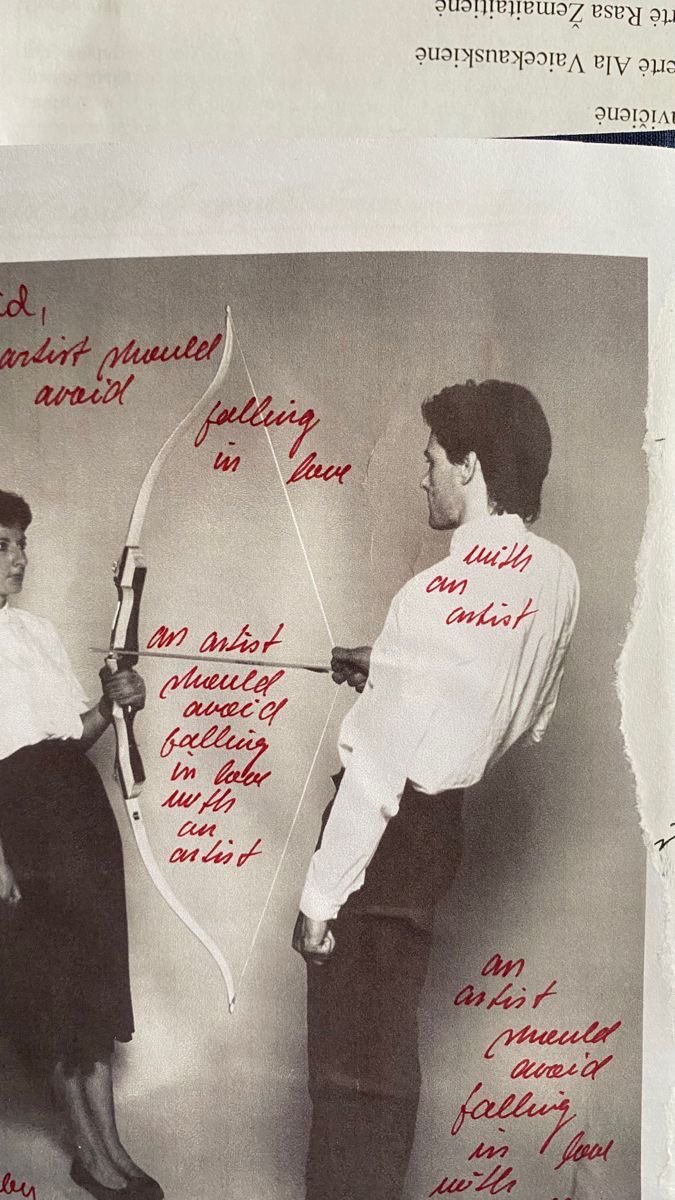 rtė Rasa Žemaitaitienė
ertė Ala Vaicekauskienė
avičienė
id,
artist should
avoid
falling
in love
with
an
artist
an artist
should
avoid
falling
in love
with
an
artist
an
artist
should
avoid
falling
in love
with
by